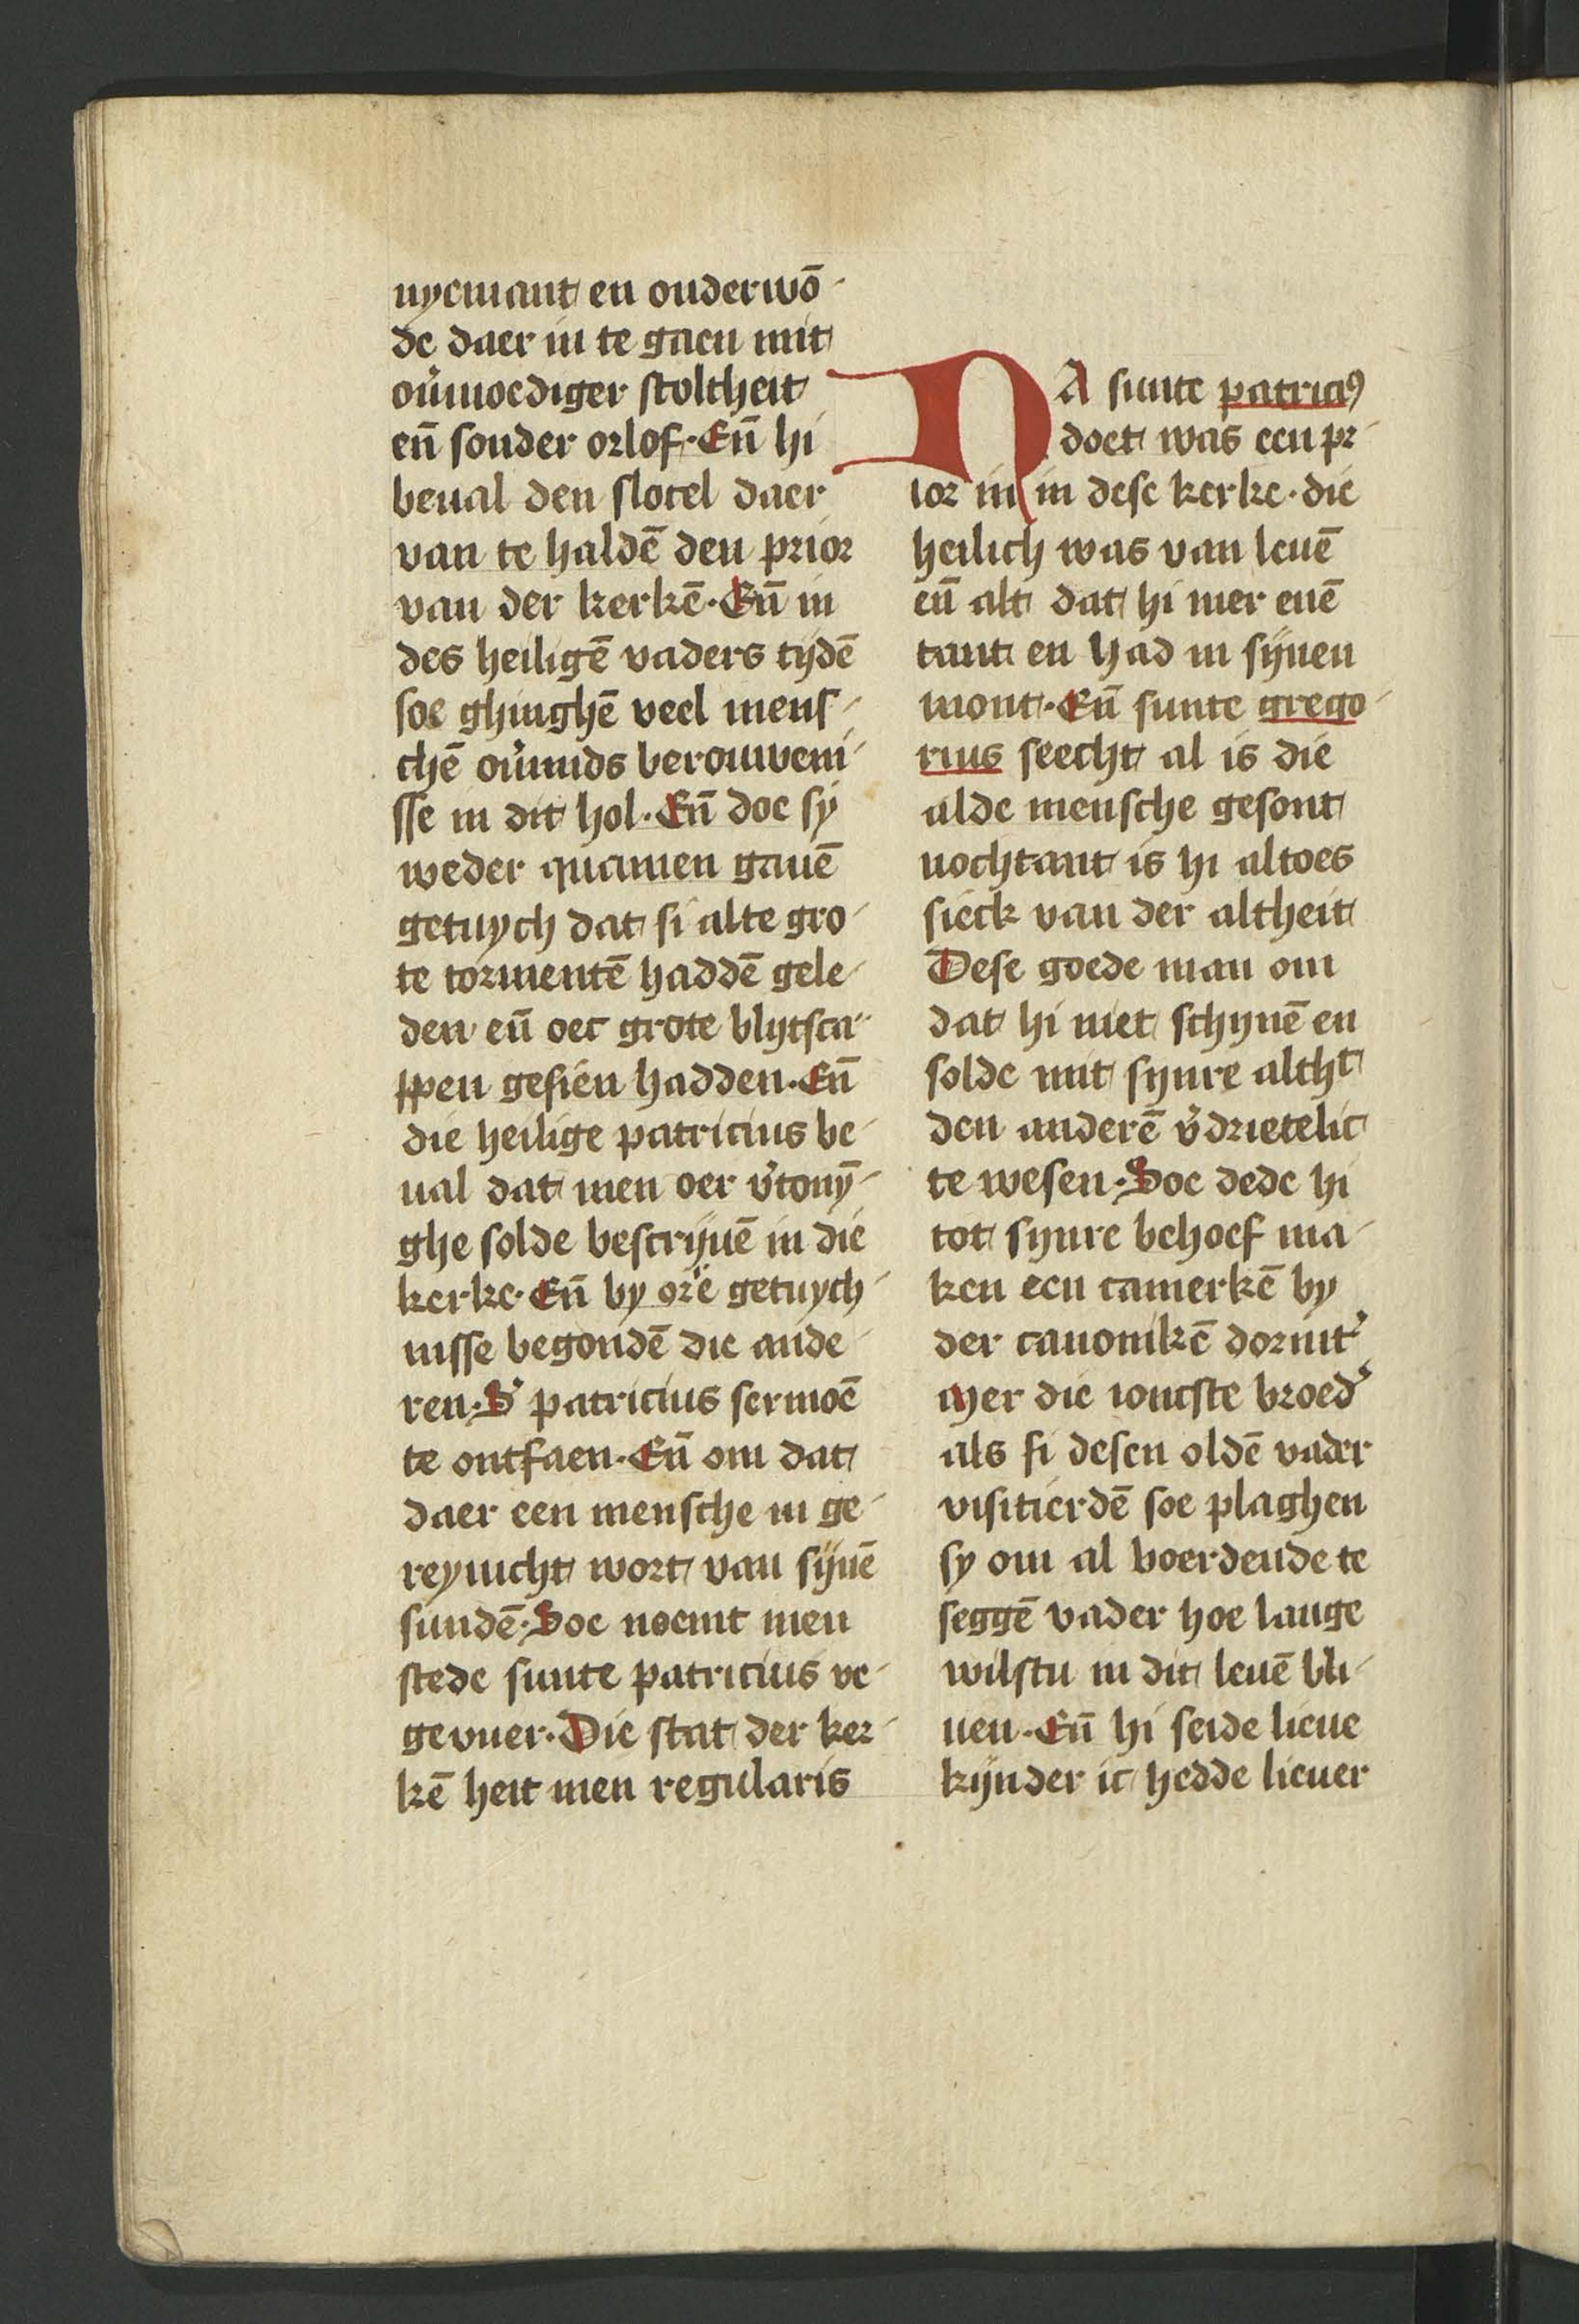 nyemant en onderwō-
de daer in te gaen mit
ou᷑moediger stoltheit
en̄ sonder orlof. En̄ hi
beual den slotel daer
van te haldē den prior
van der kerkē. En̄ in
des heiligē vaders tijdē
soe ghinghē veel mens-
chē ou᷑mids berouweni-
sse in dit hol. En̄ doe sy
weder quamen gauē
getuych dat si alte gro-
te tormentē haddē gele-
den en̄ oec grote blijtsca-
ppen gesien hadden. En̄
die heilige patricius be-
ual dat men oer v᷑tonȳ-
ghe solde bescrijuē in die
kerke. En̄ by orē getuych-
nisse begondē die ande-
ren. S᷑ patricius sermoē
te ontfaen. En̄ om dat
daer een mensche in ge-
reynicht wort van sijnē
sundē. Soe noemt men
stede sunte patricius ve-
geuuer. Die stat der ker-
kē heit men regularis
NA sunte patriciꝰ
doet was een pr-
ior in in dese kerke. die
heilich was van leuē
en̄ alt dat hi mer enē
tant en had in sijnen
mont. En̄ sunte grego-
rius seecht al is die
alde mensche gesont
nochtant is hi altoes
sieck van der altheit
Dese goede man om
dat hi niet schynē en
solde mit synre altht
den anderē v᷑drietelic
te wesen. Soe dede hi
tot synre behoef ma-
ken een camerkē by
der canonikē dormt᷑
Mer die ioncste broed᷑
als si desen oldē vader
visitierdē soe plaghen
sy om al boerdende te
seggē vader hoe lange
wilstu in dit leuē bli-
uen. En̄ hi seide lieue
kijnder ic hedde lieuer